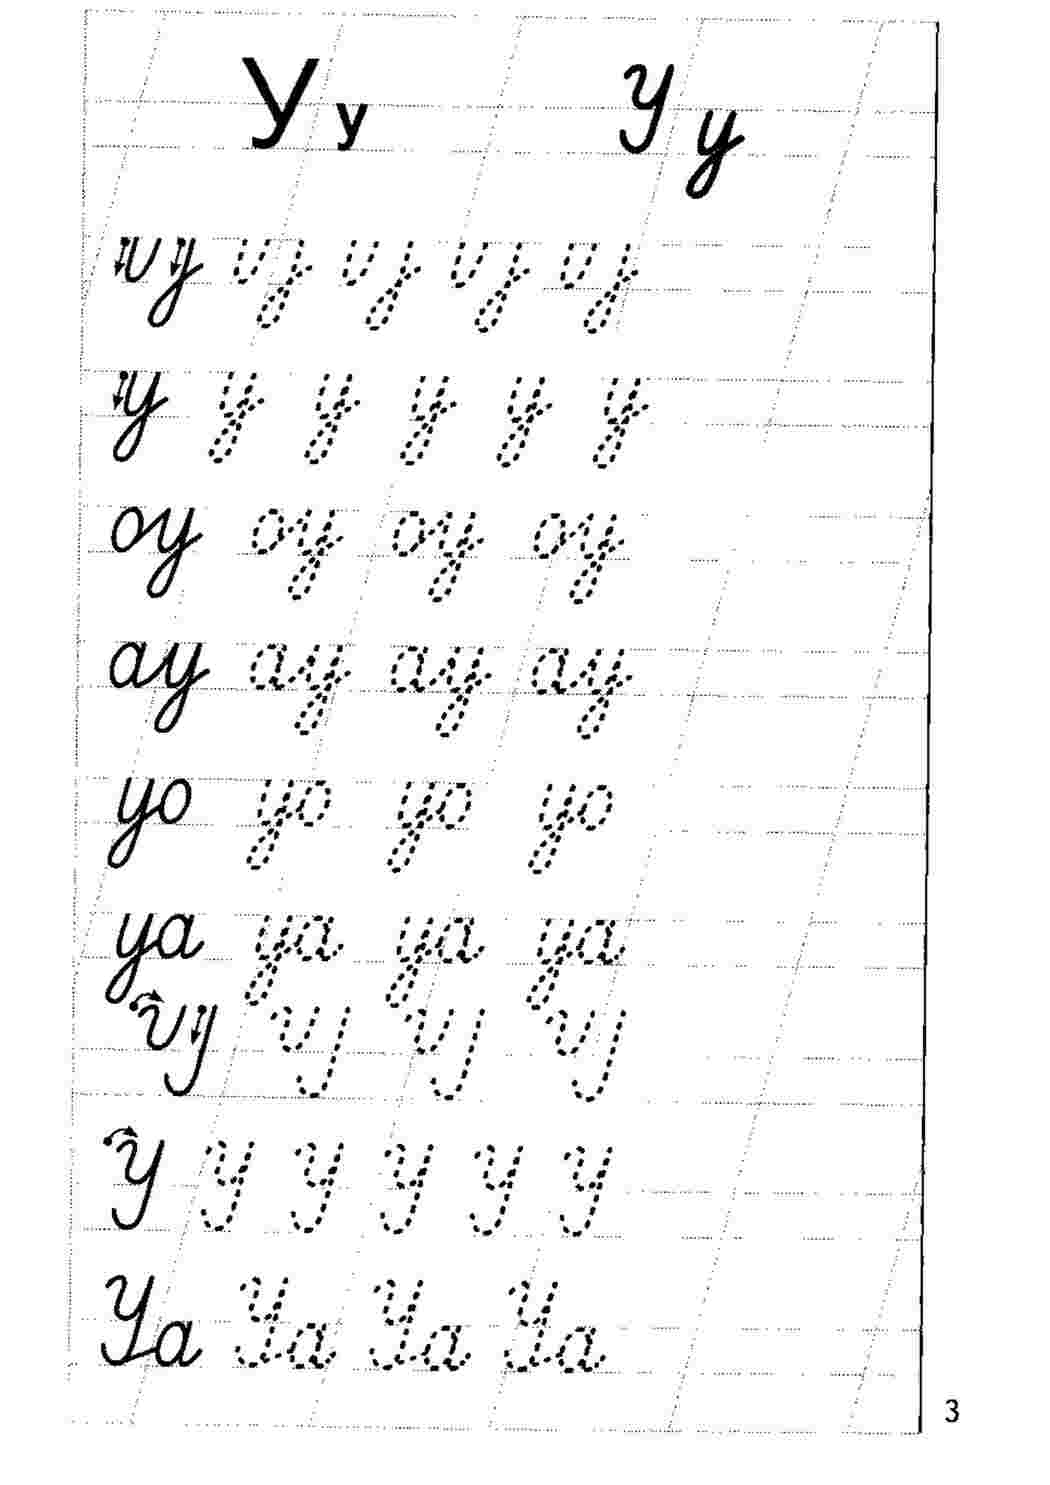 У у У у
у у у у у у
оу оу оу оу
ау ау ау ау
уо уо уо уо
уа уа уа уа
У У У У У У
Уа Уа Уа Уа
3